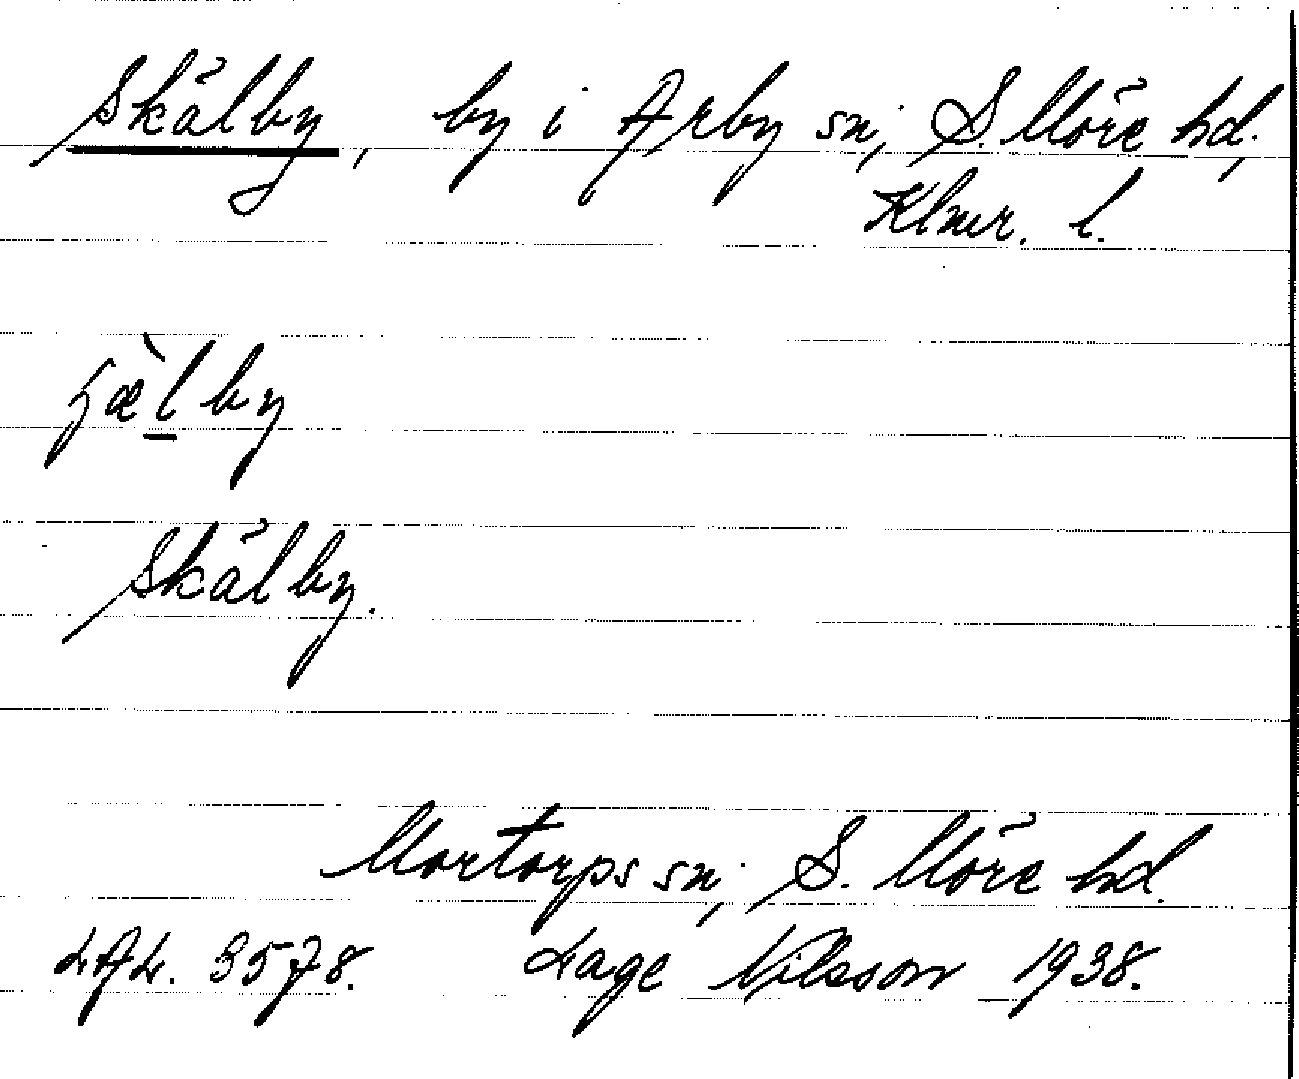 Skälby, by i Arby sn, S. Möre hd,
Klmr. l.
ʒæ̀lby
Skälby.
Mortorps sn, S. Möre hd.
LAL. 3578. Lage Nilsson 1938.